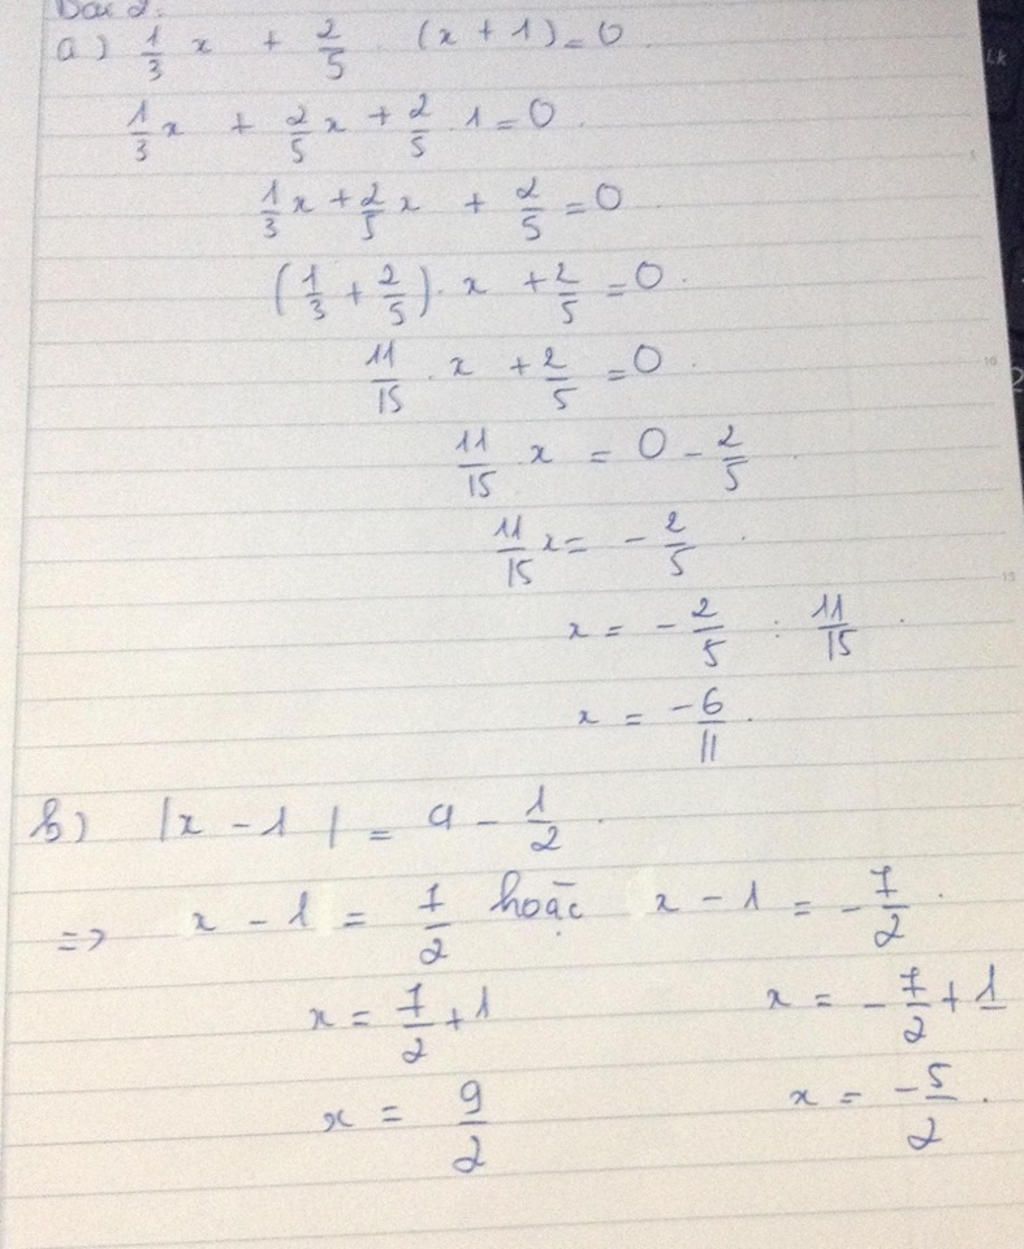 Bài 2.
a) 1/3 x + 2/5 . (x + 1) = 0
1/3 x + 2/5 x + 2/5 . 1 = 0
1/3 x + 2/5 x + 2/5 = 0
(1/3 + 2/5) . x + 2/5 = 0
11/15 . x + 2/5 = 0
11/15 . x = 0 - 2/5
11/15 x = - 2/5
x = - 2/5 : 11/15
x = -6/11
b) |x - 1| = 4 - 1/2
=> x - 1 = 7/2 hoặc x - 1 = - 7/2
x = 7/2 + 1 x = - 7/2 + 1
x = 9/2 x = -5/2